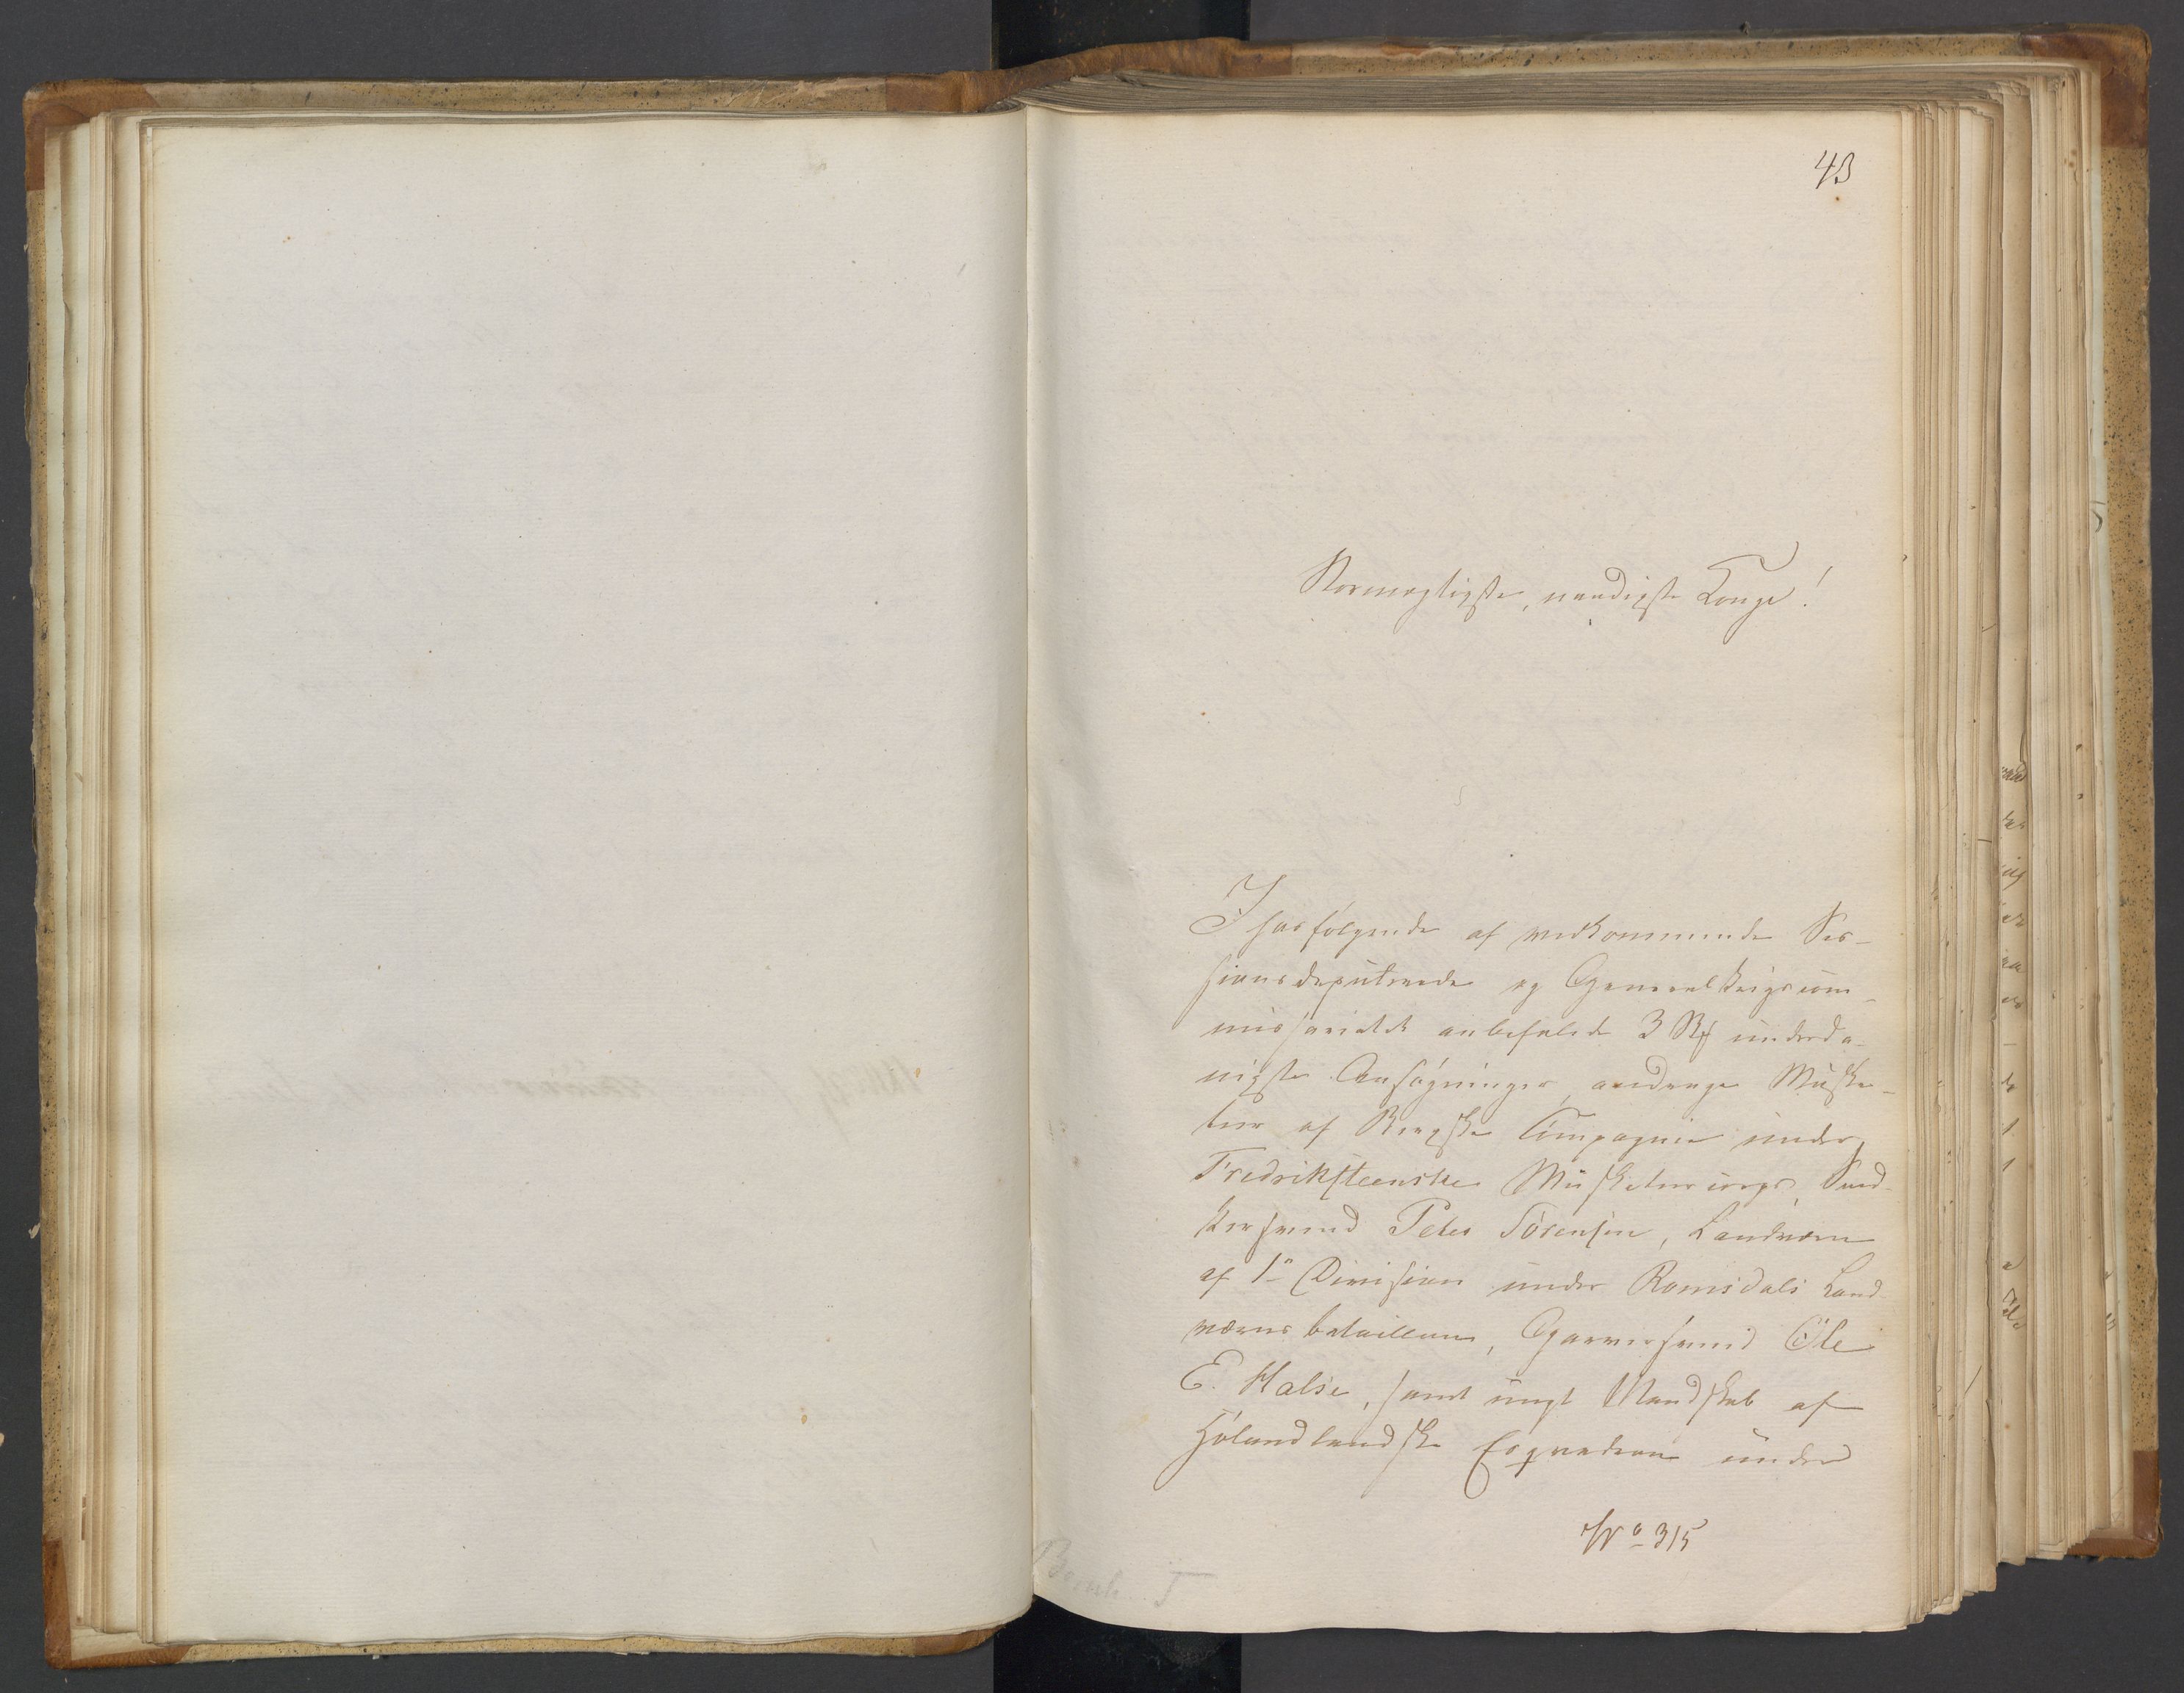 43
Stormægtigste, naadigste Konge!
I hosfølgende af vedkommende Ses-
sionsdeputerede og Generalkrigscom-
missariatet anbefalede 3 Stk underda-
nigste Ansøgninger, andrage Muske-
teer af Bergske Compagnie under
Fredriksteenske Musketeercorps, Sned-
kersvend Peter Sörensen, Landværn
af 1ste Division under Romsdals Land-
værns bataillon, Garversvend Ole
E. Halse, samt ungt Mandskab af
Hölandlandske Esqvadron under
No 315